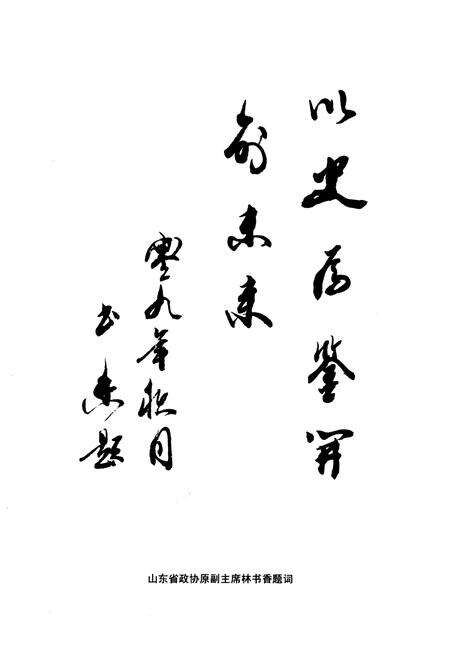 以史为鉴開
創未来
零九年秋月
书香题
山东省政协原副主席林书香题词